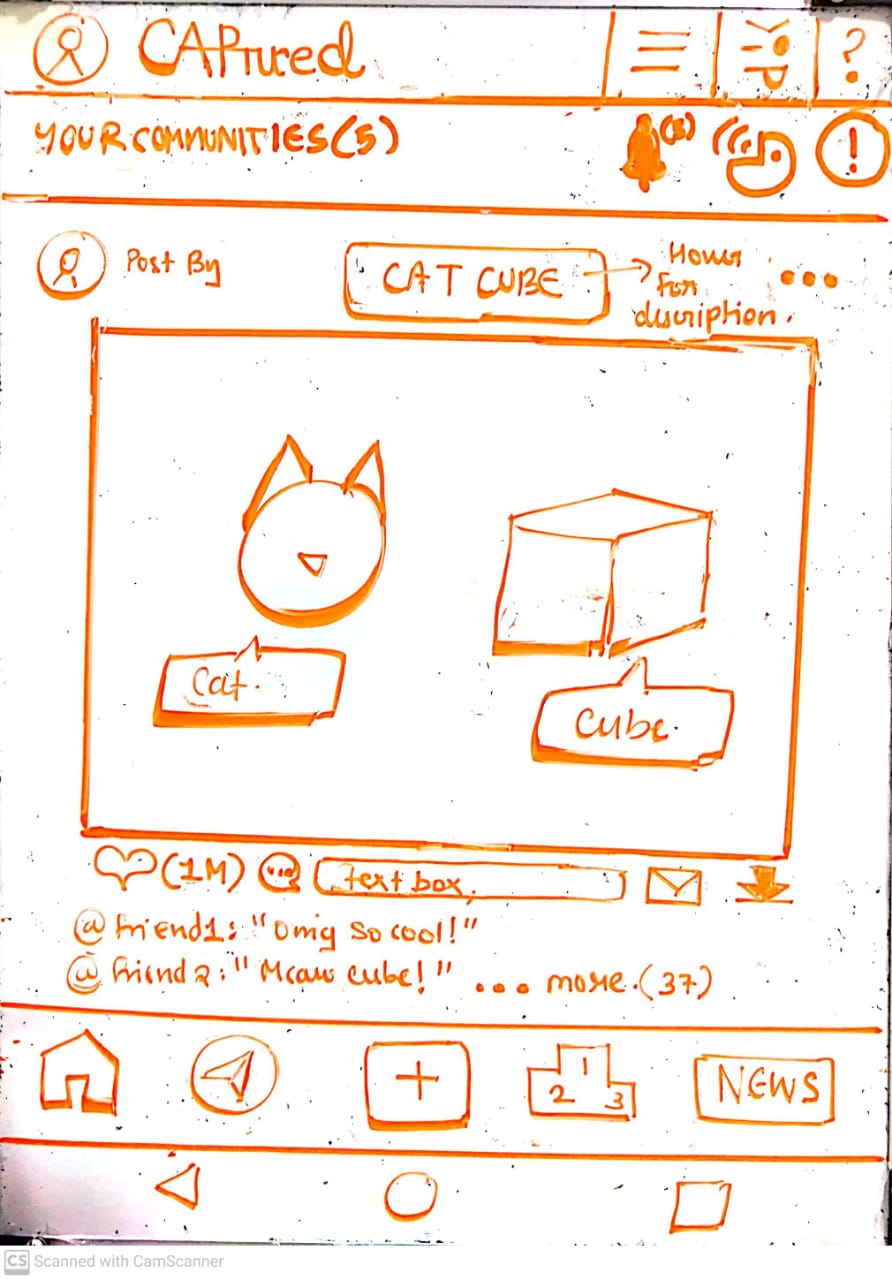 CAPtured
?
YOUR COMMUNITIES(5)
(3)
!
Post By
CAT CUBE
Hover
for
discription.
Cat.
Cube.
(1M)
Text box.
@friend1: "Omg so cool!"
@friend2: "Meaw cube!" ... more.(37)
+
1
2
3
NEWS
CS Scanned with CamScanner